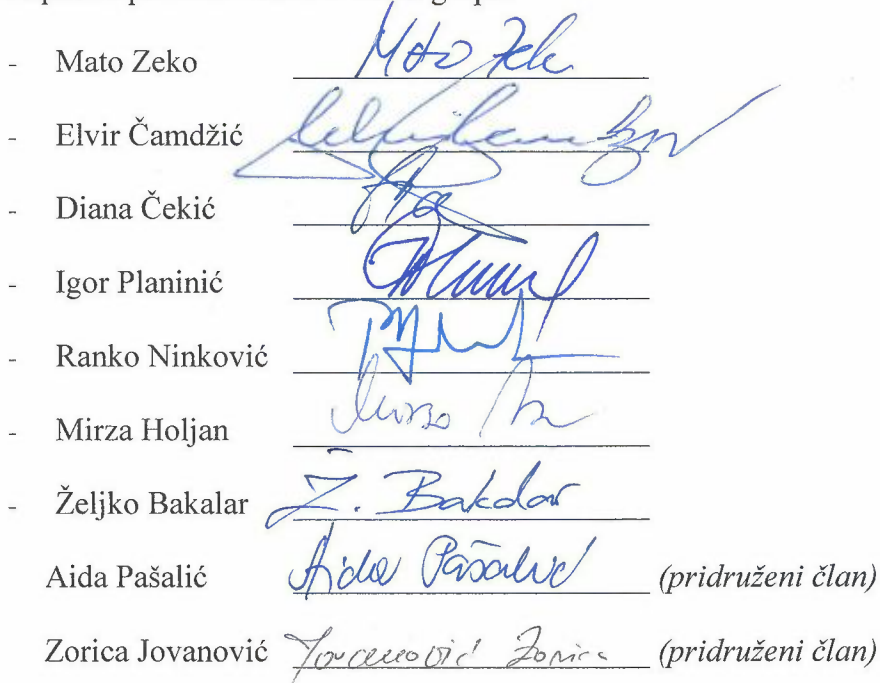 - Mato Zeko Mato Zek
- Elvir Čamdžić
- Diana Čekić
- Igor Planinić
- Ranko Ninković
- Mirza Holjan
- Željko Bakalar Ž. Bakalar
Aida Pašalić Aida Pašalić (pridruženi član)
Zorica Jovanović Jovanović Zorica (pridruženi član)